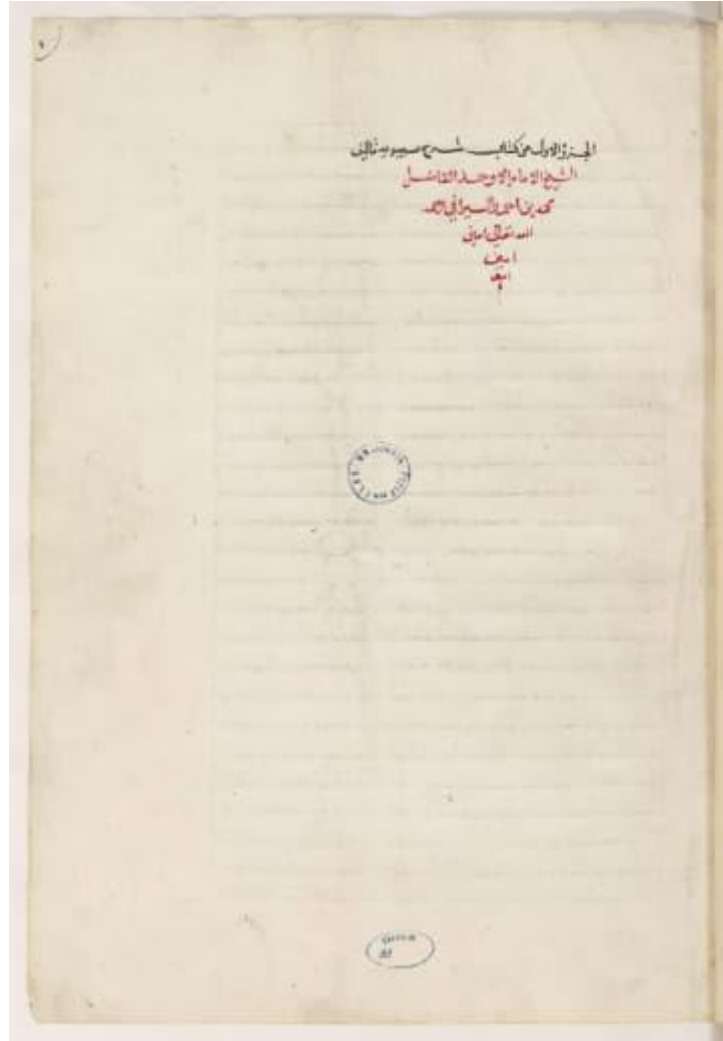 الجزو الاول من كتاب شرح سيبويه تاليف
الشيخ الامام الاوحد الفاضل
محمد بن السيرافي رحمه
الله تعالى امين
امين
امين